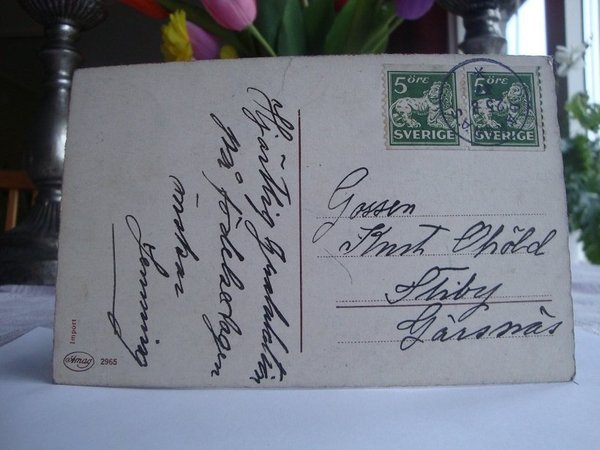 Hjärtlig gratulation
på födelsedagen
önskar
Henning
5 ÖRE
SVERIGE
5 ÖRE
SVERIGE
Gossen
Knut Ohöld
Stiby
Gärsnäs
Import
2965